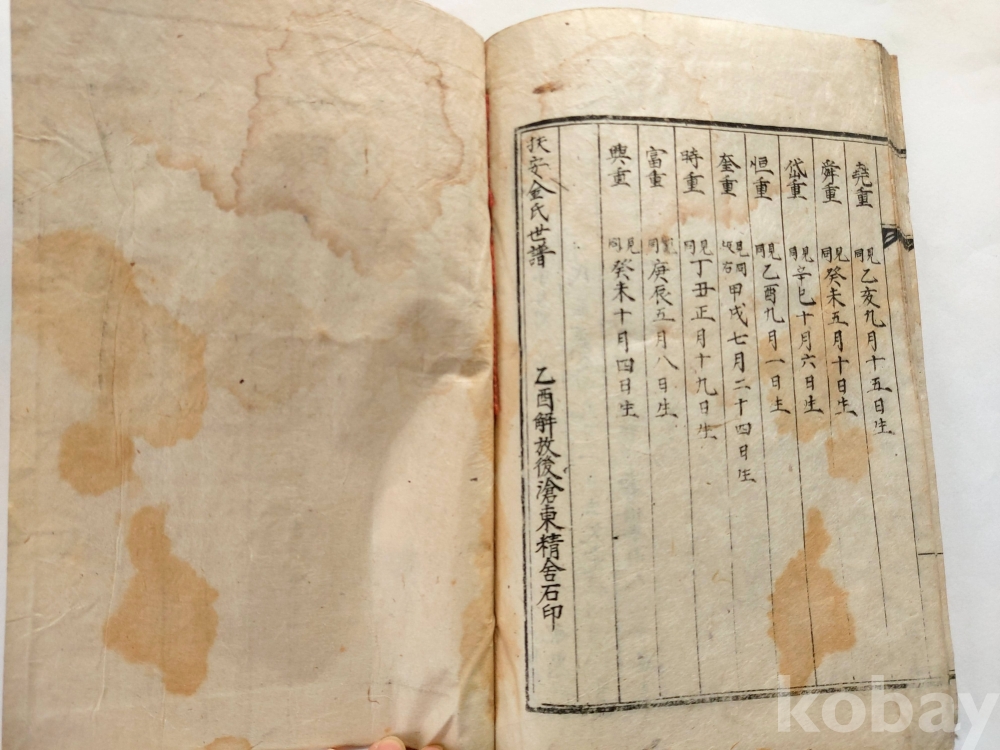 堯重 見同 乙亥九月十五日生
舜重 見同 癸未五月十日生
岱重 見同 辛巳十月六日生
恒重 見同 乙酉九月一日生
奎重 見同 甲戌七月二十四日生
時重 見同 丁丑正月十九日生
富重 見同 庚辰五月八日生
興重 見同 癸未十月四日生
扶安金氏世譜 乙酉解放後滄東精舍石印
kobay